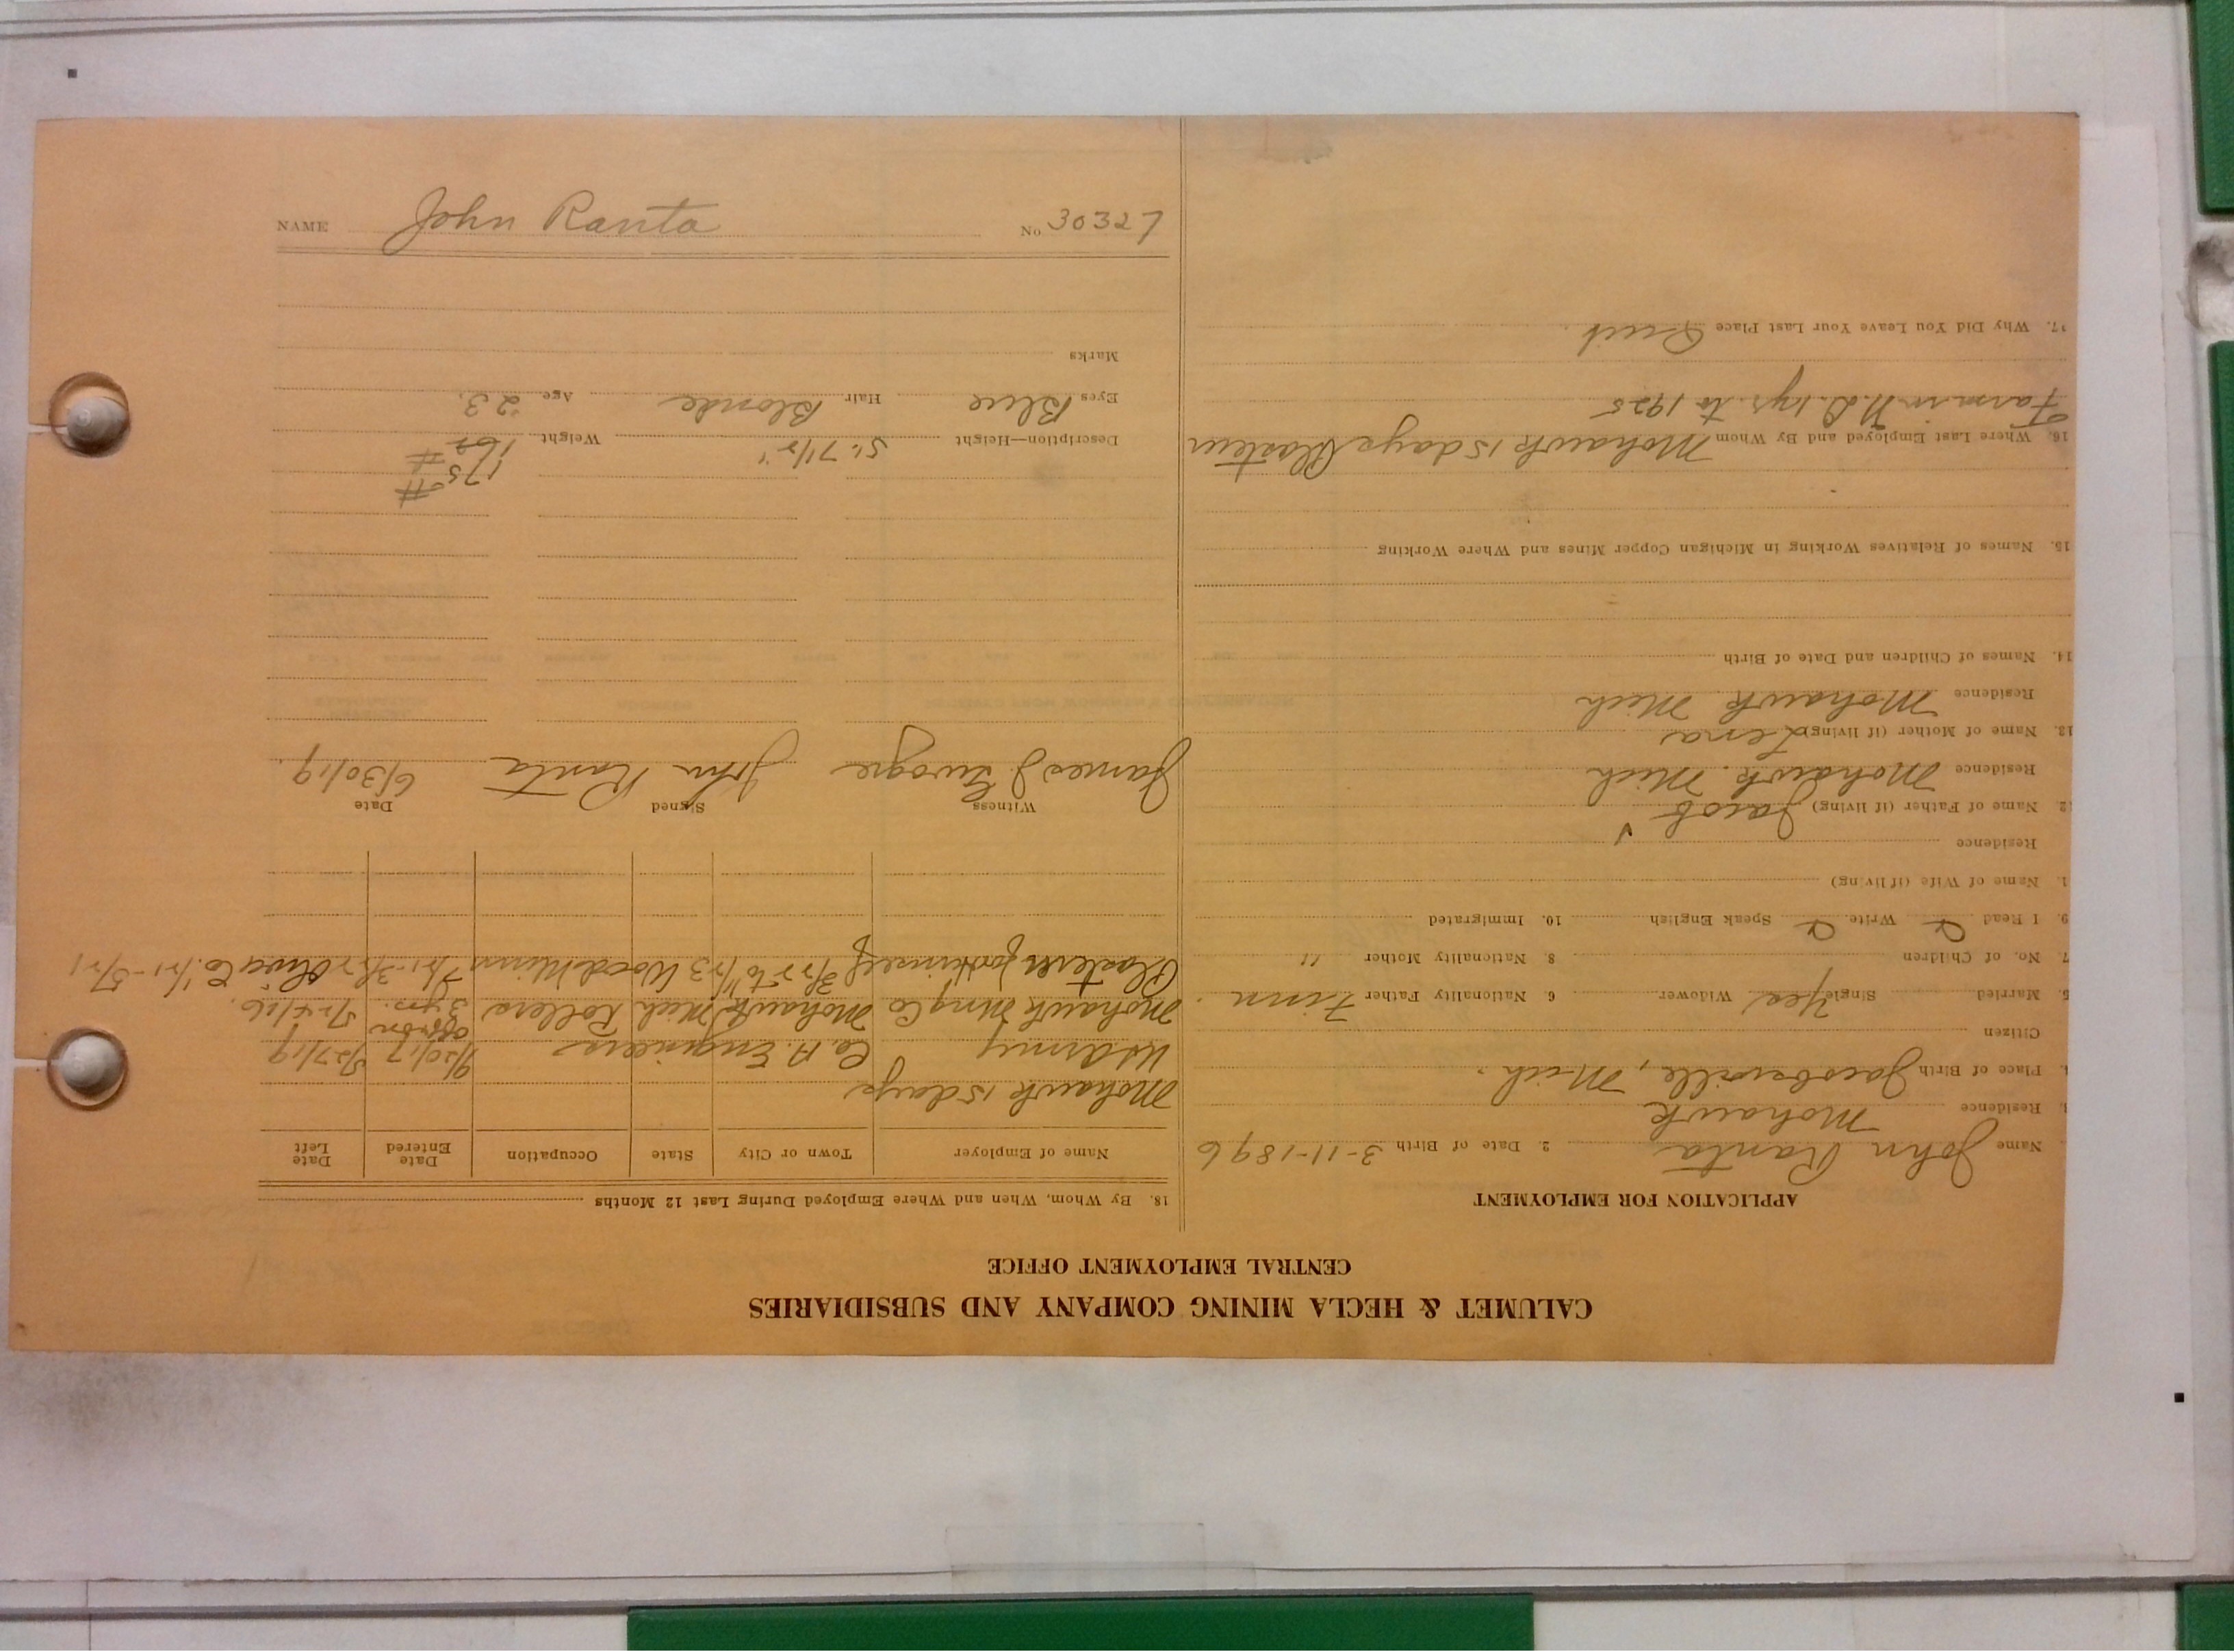 CALUMET & HECLA MINING COMPANY AND SUBSIDIARIES
CENTRAL EMPLOYMENT OFFICE
APPLICATION FOR EMPLOYMENT
Name John Ranta 2. Date of Birth 3-11-1896
3. Residence Mohawk
4. Place of Birth Jacobsville, Mich.
Citizen
5. Married Single Yes Widower 6. Nationality Father Finn.
7. No. of Children 8. Nationality Mother "
9. I Read Write Speak English 10. Immigrated
1. Name of Wife (if living)
Residence
12. Name of Father (if living) Jacob
Residence Mohawk. Mich
13. Name of Mother (if living) Lena
Residence Mohawk Mich
14. Names of Children and Date of Birth
15. Names of Relatives Working in Michigan Copper Mines and Where Working
16. Where Last Employed and By Whom Mohawk 15 days
Farm in N.D. 1 yr. to 1925
17. Why Did You Leave Your Last Place Quit
18. By Whom, When and Where Employed During Last 12 Months
Name of Employer Town or City State Occupation Date Entered Date Left
Mohawk 15 days
US Army Co. A. Engineers 9/20/17 5/27/19
off & on
Mohawk Mng Co Mohawk Mich Rollers 3 yrs. 5/24/16.
for Himself Wood Minn
Witness Signed Date
James J John Ranta 6/30/19.
175#
Description—Height 5'. 7 1/2" Weight 162 #
Eyes Blue Hair Blonde Age 23.
Marks
NAME John Ranta No 30327